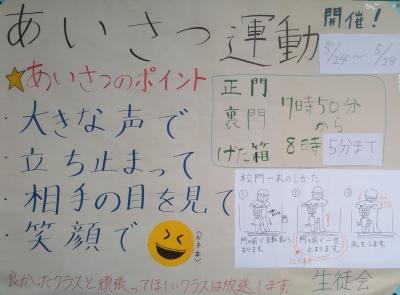 あいさつ運動
開催！
5/24〜5/28
あいさつのポイント
・大きな声で
・立ち止まって
・相手の目を見て
・笑顔で
正門
裏門
げた箱
7時50分
から
8時5分まで
校門一礼のしかた
① ② ③
礼をします。
良かったクラスと頑張ってほしいクラスは放送します
生徒会